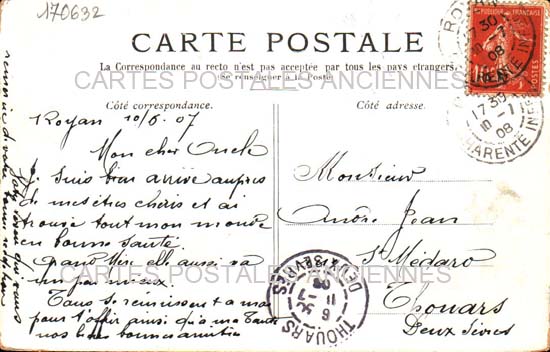 170632
CARTE POSTALE
La Correspondance au recto n'est pas acceptée par tous les pays étrangers.
(Se renseigner à la Poste)
CARTES POSTALES ANCIENNES
Côté correspondance.
Côté adresse.
Royan 10/6.07
Mon cher Oncle
Je suis bien arrivé auprès
de mes êtres chéris et ai
trouvé tout mon monde
en bonne santé.
Grand Mère elle aussi va
un peu mieux.
Tous se réunissent a moi
pour t'offrir ainsi qu'à ma Tante
nos bien bonnes amitiés
Monsieur
André Jean
St Médard
Thouars
Deux Sèvres
CARTES POSTALES ANCIENNES
THOUARS
DEUX-SÈVRES
6 30
11 -7
08
17 30
10 -7
08
CHARENTE INFRE
17 30
10 -7
08
CHARENTE INFRE
POSTES